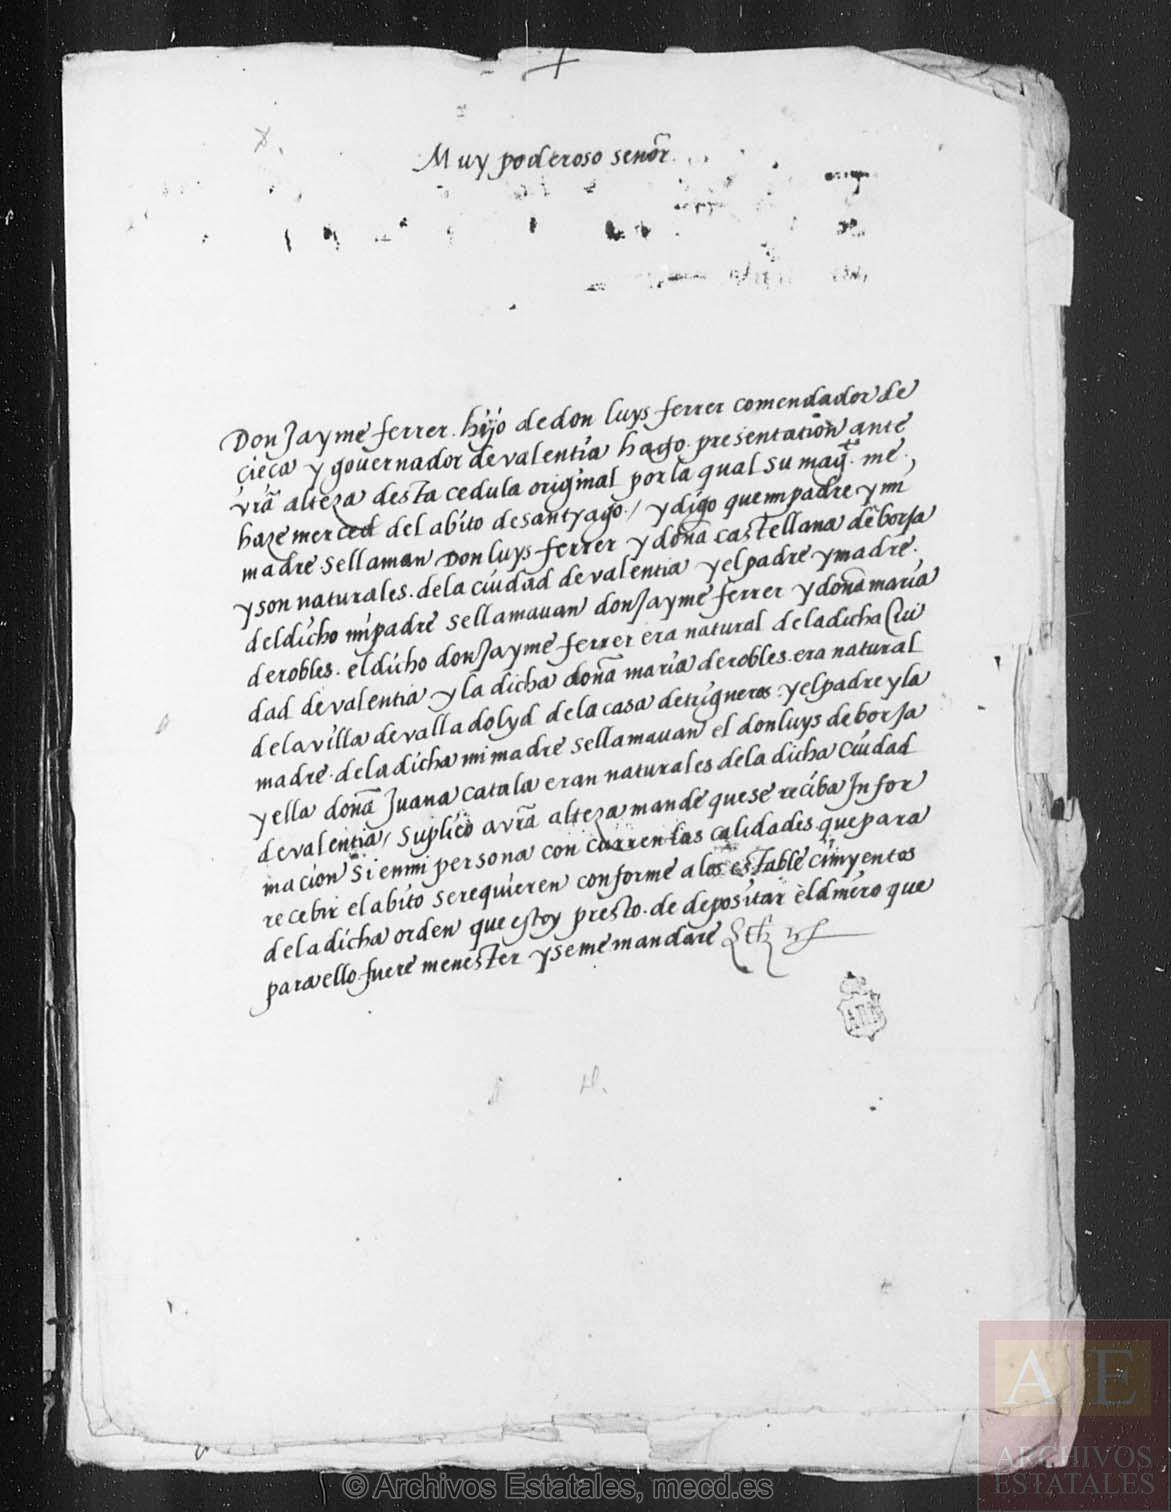 Muy poderoso señor
Don Jayme ferrer. hijo de don luys ferrer comendador de
cieça y governador de valentia hago. presentation ante
vrã alteza desta cedula original por la qual su mag.t me.
haze merced del abito de santyago./ y digo que mi padre y mi
madre se llaman Don luys ferrer y doña castellana de borja
y son naturales. de la ciudad de valentia y el padre y madre.
del dicho mi padre se llamavan don Jayme ferrer y doña maria
de robles. el dicho don Jayme ferrer era natural de la dicha Ciu
dad de valentia y la dicha doña maria de robles. era natural
de la villa de valladolyd de la casa de trigueros. y el padre y la
madre. de la dicha mi madre se llamavan el don luys de borja
y ella doña Juana catala eran naturales de la dicha ciudad
de valentia/ suplico a vrã alteza mande que se reciba Infor
macion si en mi persona concurren las calidades que para
recebir el abito se requieren conforme a los establecimyentos
de la dicha orden que estoy presto. de depositar el dinero que
para ello. fuere menester y se me mandare
© Archivos Estatales, mecd.es
AE
ARCHIVOS
ESTATALES